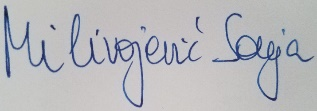 Milivojević Sanja